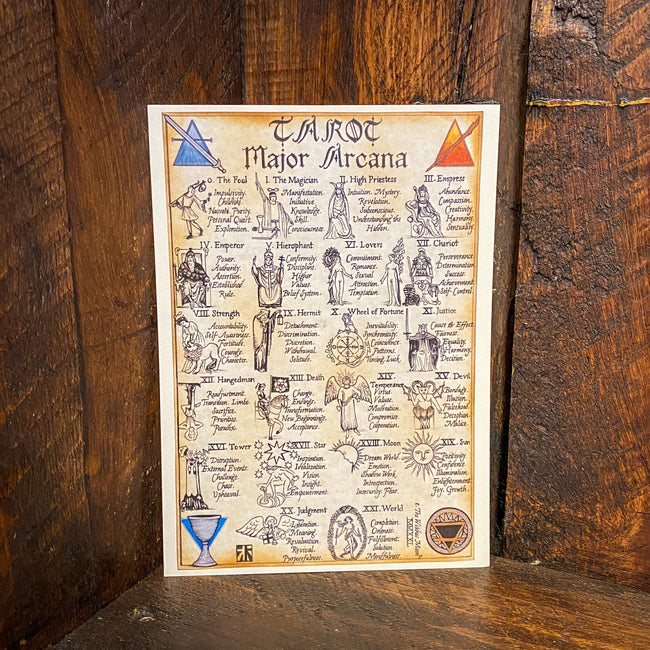 TAROT
Major Arcana
0. The Fool
Impulsivity.
Childlike
Naiveté. Purity.
Personal Quest.
Exploration.
I. The Magician
Manifestation.
Initiative.
Knowledge.
Skill.
Consciousness.
II. High Priestess
Intuition. Mystery.
Revelation.
Subconscious.
Understanding the
Hidden.
III. Empress
Abundance.
Compassion.
Creativity.
Harmony.
Sensuality.
IV. Emperor
Power.
Authority.
Assertion.
Established
Rule.
V. Hierophant
Conformity.
Discipline.
Higher
Values.
Belief System.
VI. Lovers
Commitment.
Romance.
Sexual
Attraction.
Temptation.
VII. Chariot
Perseverance.
Determination.
Success.
Achievement.
Self-Control.
VIII. Strength
Accountability.
Self-Awareness.
Fortitude.
Courage.
Character.
IX. Hermit
Detachment.
Discrimination.
Discretion.
Withdrawal.
Solitude.
X. Wheel of Fortune
Inevitability.
Synchronicity.
Coincidence.
Patterns.
Timing. Luck.
XI. Justice
Cause & Effect.
Fairness.
Equality.
Harmony.
Decision.
XII. Hangedman
Readjustment.
Transition. Limbo.
Sacrifice.
Priorities.
Paradox.
XIII. Death
Change.
Endings.
Transformation.
New Beginnings.
Acceptance.
XIV.
Temperence
Virtue.
Values.
Moderation.
Compromise.
Cooperation.
XV. Devil
Bondage.
Illusion.
Falsehood.
Deception.
Malice.
XVI. Tower
Disruption.
External Events.
Challenge.
Chaos.
Upheaval.
XVII. Star
Inspiration.
Idealization
Vision.
Insight.
Empowerment.
XVIII. Moon
Dream World.
Emotion.
Shadow Work.
Introspection.
Insecurity. Fear.
XIX. Sun
Positivity.
Confidence.
Illumination.
Enlightenment.
Joy. Growth.
XX. Judgment
Liberation.
Meaning.
Revaluation.
Revival.
Purposefulness.
XXI. World
Completion.
Oneness.
Fulfillment.
Solution.
Mindfulness.